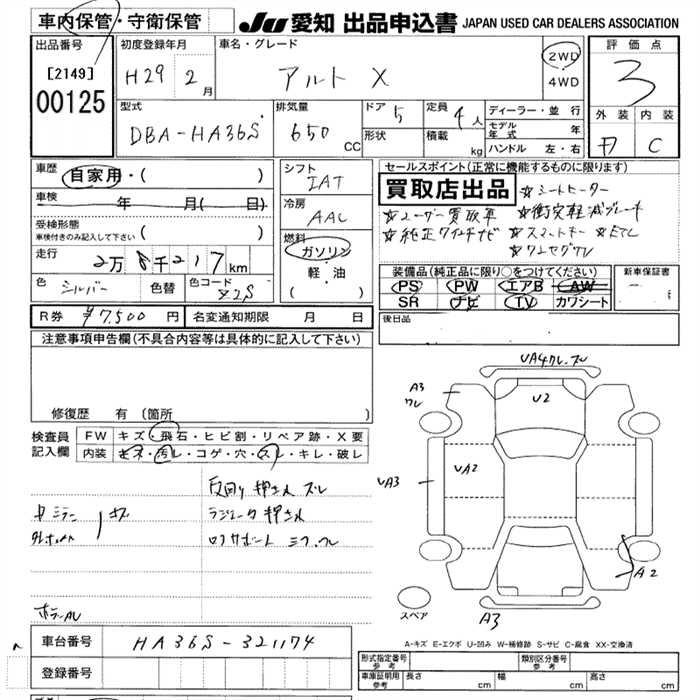 車内保管・守衛保管
JU 愛知 出品申込書 JAPAN USED CAR DEALERS ASSOCIATION
出品番号
[2149]
00125
初度登録年月
H29 2月
車名・グレード
アルト X
2WD
4WD
評価点
3
外装 内装
C
型式
DBA-HA36S
排気量
650 CC
ドア 5
形状
定員 4人
積載 kg
ディーラー・並行
モデル年式 年
ハンドル 左・右
車歴
自家用・( )
車検 年 月( 日)
受検形態
車検付きのみ記入して下さい ( )
走行 2万8千217km
色 シルバー 色替 色コード Z2S
R券 ¥7,500 円 名変通知期限 月 日
シフト
IAT
冷房
AAC
燃料
ガソリン
軽・油
( )
セールスポイント(正常に機能するものに限ります)
買取店出品
☆シートヒーター
☆ユーザー買取車 ☆衝突軽減ブレーキ
☆純正ワイドナビ ☆スマートキー ☆ETC
☆ワンセグTV
装備品(純正品に限り○をつけてください)
PS PW エアB AW
SR ナビ TV カワシート
新車保証書
後日品
注意事項申告欄(不具合内容等は具体的に記入して下さい)
修復歴 有 (箇所
検査員記入欄
FW キズ・飛石・ヒビ割・リペア跡・X要
内装 キズ・汚レ・コゲ・穴・スレ・キレ・破レ
反回り押され ズレ
ラジエータ押され
ホデーAU
VA4クレ、ズレ
A3
クレ
U2
VA3
VA2
A2
スペア
A3
A-キズ E-エクボ U-凹み W-補修跡 S-サビ C-腐食 XX-交換済
車台番号 HA36S-321174
登録番号
形式指定番号 参考
類別区分番号 参考
車庫証明用 参考 長さ cm 幅 cm 高さ cm